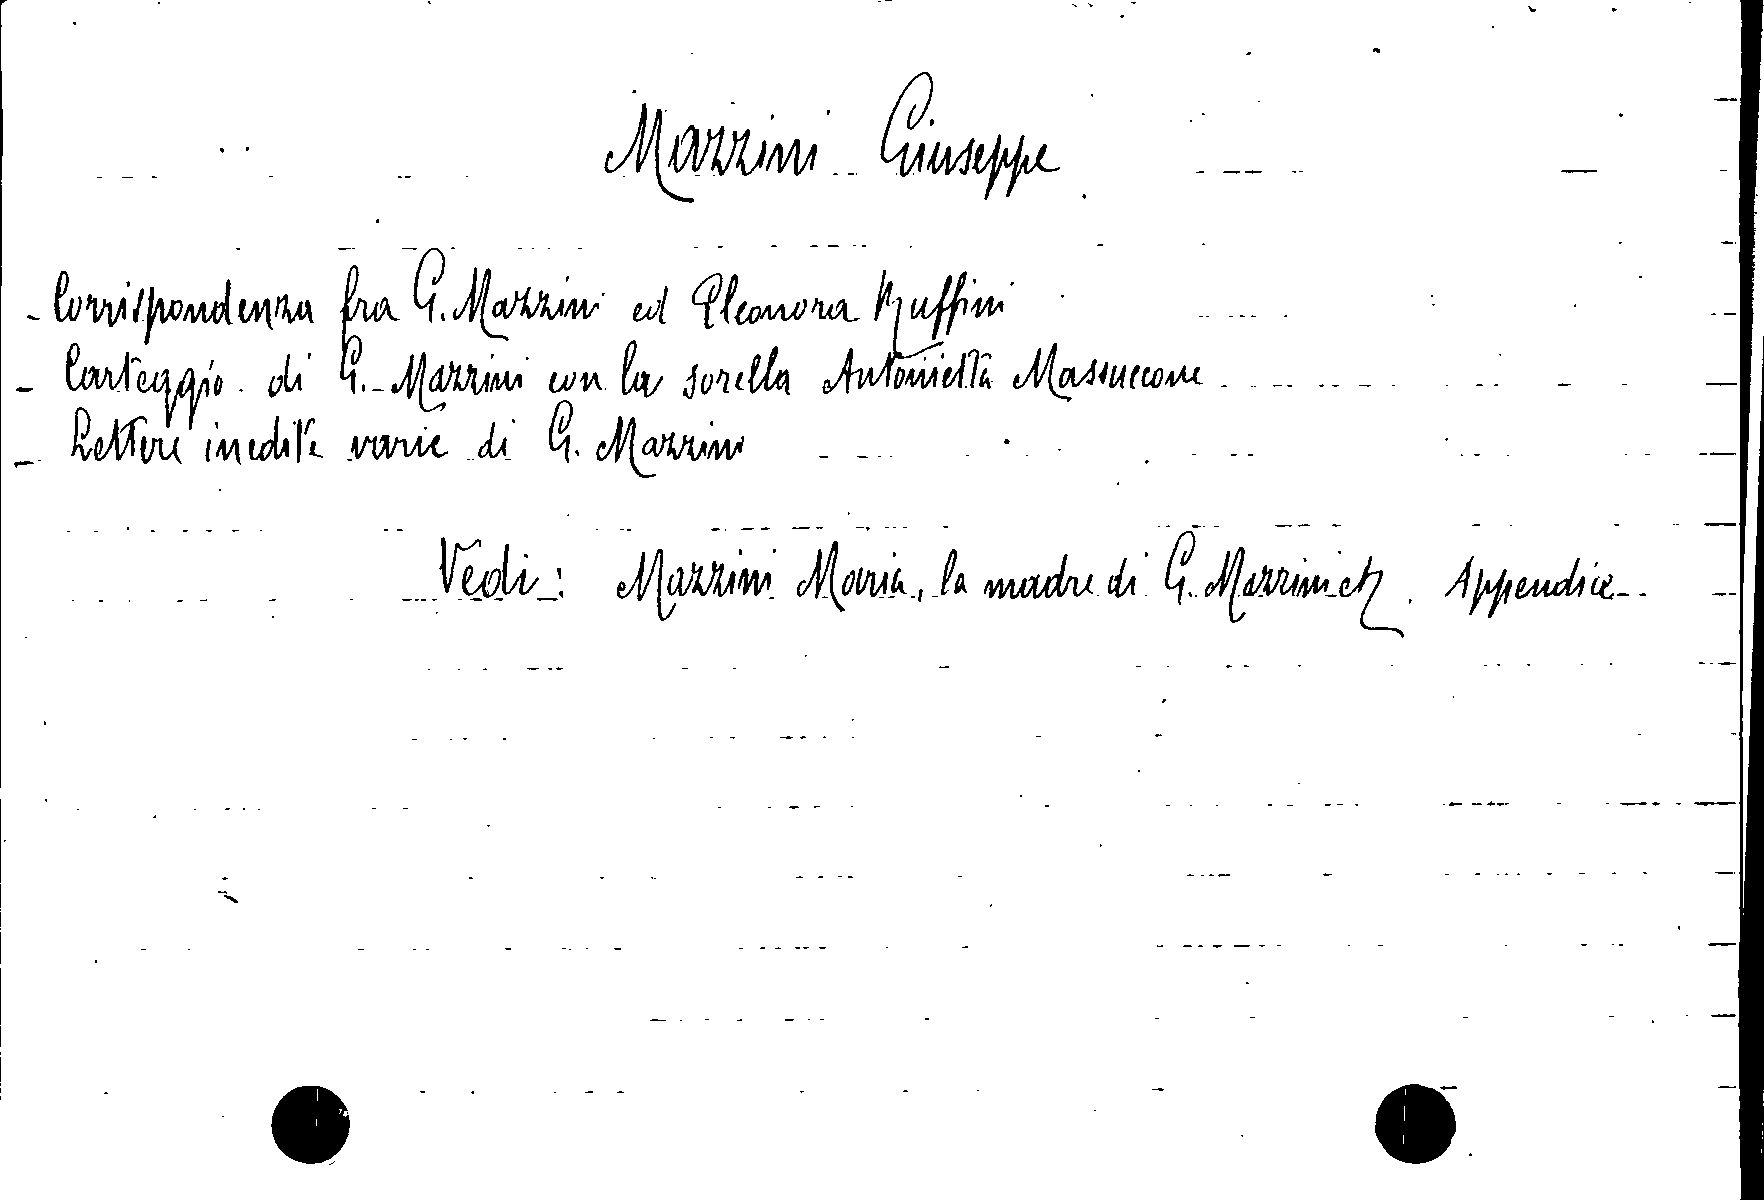 Mazzini Giuseppe
- Corrispondenza fra G. Mazzini ed Eleonora Ruffini
- Carteggio di G. Mazzini con la sorella Antonietta Massuccone
- Lettere inedite varie di G. Mazzini
Vedi: Mazzini Maria, la madre di G. Mazzini etc. Appendice